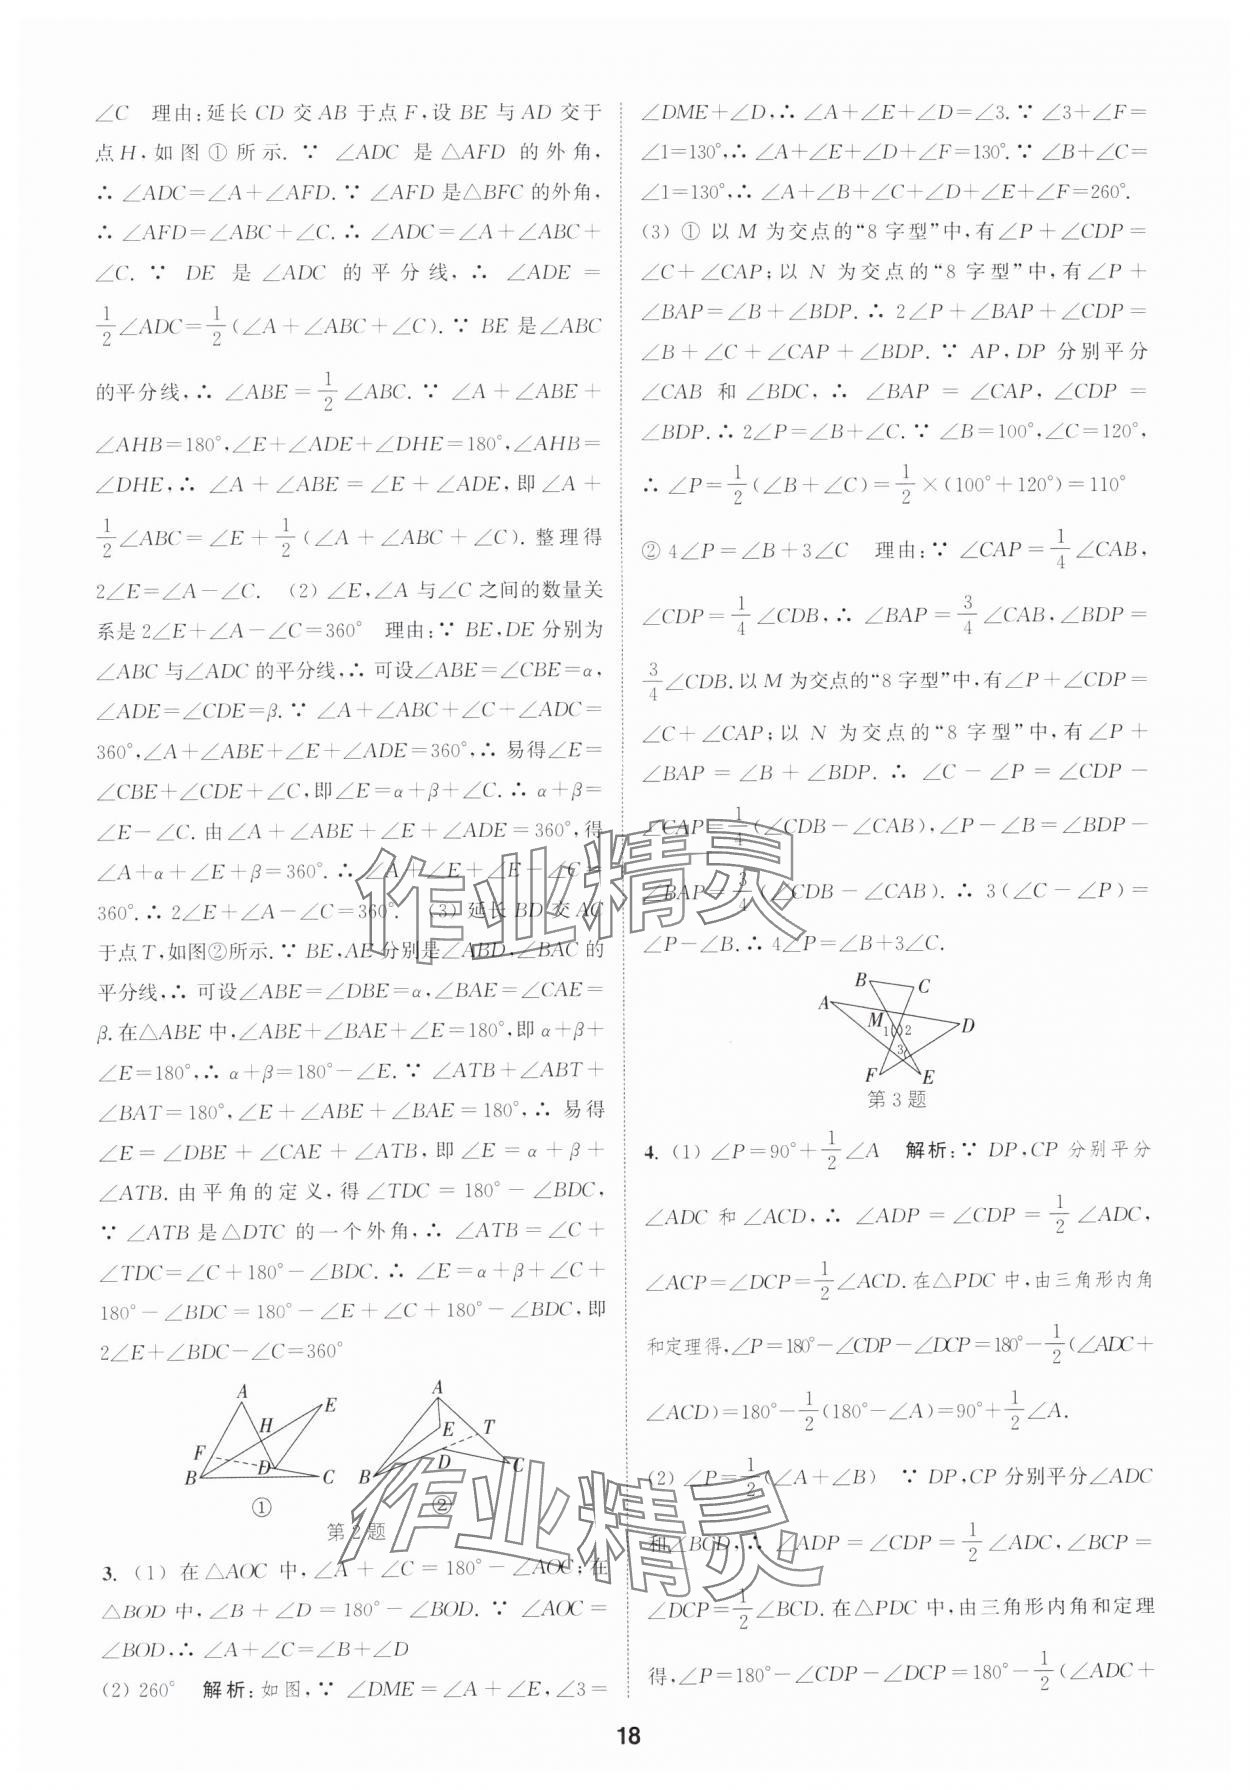 ∠C　理由:延长 CD 交 AB 于点 F,设 BE 与 AD 交于
点 H,如图 ① 所示. ∵ ∠ADC 是 △AFD 的外角,
∴ ∠ADC=∠A+∠AFD. ∵ ∠AFD 是△BFC 的外角,
∴ ∠AFD=∠ABC+∠C. ∴ ∠ADC=∠A+∠ABC+
∠C. ∵ DE 是 ∠ADC 的平分线, ∴ ∠ADE =
1/2∠ADC=1/2(∠A+∠ABC+∠C). ∵ BE 是∠ABC
的平分线,∴ ∠ABE=1/2∠ABC. ∵ ∠A+∠ABE+
∠AHB=180°,∠E+∠ADE+∠DHE=180°,∠AHB=
∠DHE,∴ ∠A+∠ABE=∠E+∠ADE,即∠A+
1/2∠ABC=∠E+1/2(∠A+∠ABC+∠C). 整理得
2∠E=∠A-∠C. (2) ∠E,∠A 与∠C 之间的数量关
系是 2∠E+∠A-∠C=360°　理由:∵ BE,DE 分别为
∠ABC 与∠ADC 的平分线,∴ 可设∠ABE=∠CBE=α,
∠ADE=∠CDE=β. ∵ ∠A+∠ABC+∠C+∠ADC=
360°,∠A+∠ABE+∠E+∠ADE=360°,∴ 易得∠E=
∠CBE+∠CDE+∠C,即∠E=α+β+∠C. ∴ α+β=
∠E-∠C. 由∠A+∠ABE+∠E+∠ADE=360°,得
∠A+α+∠E+β=360°. ∴ ∠A+∠E+∠E-∠C=
360°. ∴ 2∠E+∠A-∠C=360°. (3) 延长 BD 交 AC
于点 T,如图②所示. ∵ BE,AE 分别是∠ABD,∠BAC 的
平分线,∴ 可设∠ABE=∠DBE=α,∠BAE=∠CAE=
β. 在△ABE 中,∠ABE+∠BAE+∠E=180°,即 α+β+
∠E=180°,∴ α+β=180°-∠E. ∵ ∠ATB+∠ABT+
∠BAT=180°,∠E+∠ABE+∠BAE=180°,∴ 易得
∠E=∠DBE+∠CAE+∠ATB,即∠E=α+β+
∠ATB. 由平角的定义,得∠TDC=180°-∠BDC,
∵ ∠ATB 是△DTC 的一个外角,∴ ∠ATB=∠C+
∠TDC=∠C+180°-∠BDC. ∴ ∠E=α+β+∠C+
180°-∠BDC=180°-∠E+∠C+180°-∠BDC,即
2∠E+∠BDC-∠C=360°
A E H F D B C ①
A E T D B C ②
第 2 题
3. (1) 在△AOC 中,∠A+∠C=180°-∠AOC;在
△BOD 中,∠B+∠D=180°-∠BOD. ∵ ∠AOC=
∠BOD,∴ ∠A+∠C=∠B+∠D
(2) 260°　解析:如图,∵ ∠DME=∠A+∠E,∠3=
∠DME+∠D,∴ ∠A+∠E+∠D=∠3. ∵ ∠3+∠F=
∠1=130°,∴ ∠A+∠E+∠D+∠F=130°. ∵ ∠B+∠C=
∠1=130°,∴ ∠A+∠B+∠C+∠D+∠E+∠F=260°.
(3) ① 以 M 为交点的“8 字型”中,有∠P+∠CDP=
∠C+∠CAP;以 N 为交点的“8 字型”中,有∠P+
∠BAP=∠B+∠BDP. ∴ 2∠P+∠BAP+∠CDP=
∠B+∠C+∠CAP+∠BDP. ∵ AP,DP 分别平分
∠CAB 和∠BDC,∴ ∠BAP=∠CAP,∠CDP=
∠BDP. ∴ 2∠P=∠B+∠C. ∵ ∠B=100°,∠C=120°,
∴ ∠P=1/2(∠B+∠C)=1/2×(100°+120°)=110°
② 4∠P=∠B+3∠C　理由:∵ ∠CAP=1/4∠CAB,
∠CDP=1/4∠CDB,∴ ∠BAP=3/4∠CAB,∠BDP=
3/4∠CDB. 以 M 为交点的“8 字型”中,有∠P+∠CDP=
∠C+∠CAP;以 N 为交点的“8 字型”中,有∠P+
∠BAP=∠B+∠BDP. ∴ ∠C-∠P=∠CDP-
∠CAP=1/4(∠CDB-∠CAB),∠P-∠B=∠BDP-
∠BAP=3/4(∠CDB-∠CAB). ∴ 3(∠C-∠P)=
∠P-∠B. ∴ 4∠P=∠B+3∠C.
B C A M 1 2 D 3 F E
第 3 题
4. (1) ∠P=90°+1/2∠A　解析:∵ DP,CP 分别平分
∠ADC 和∠ACD,∴ ∠ADP=∠CDP=1/2∠ADC,
∠ACP=∠DCP=1/2∠ACD. 在△PDC 中,由三角形内角
和定理得,∠P=180°-∠CDP-∠DCP=180°-1/2(∠ADC+
∠ACD)=180°-1/2(180°-∠A)=90°+1/2∠A.
(2) ∠P=1/2(∠A+∠B)　∵ DP,CP 分别平分∠ADC
和∠BCD,∴ ∠ADP=∠CDP=1/2∠ADC,∠BCP=
∠DCP=1/2∠BCD. 在△PDC 中,由三角形内角和定理
得,∠P=180°-∠CDP-∠DCP=180°-1/2(∠ADC+
18
作业精灵
作业精灵